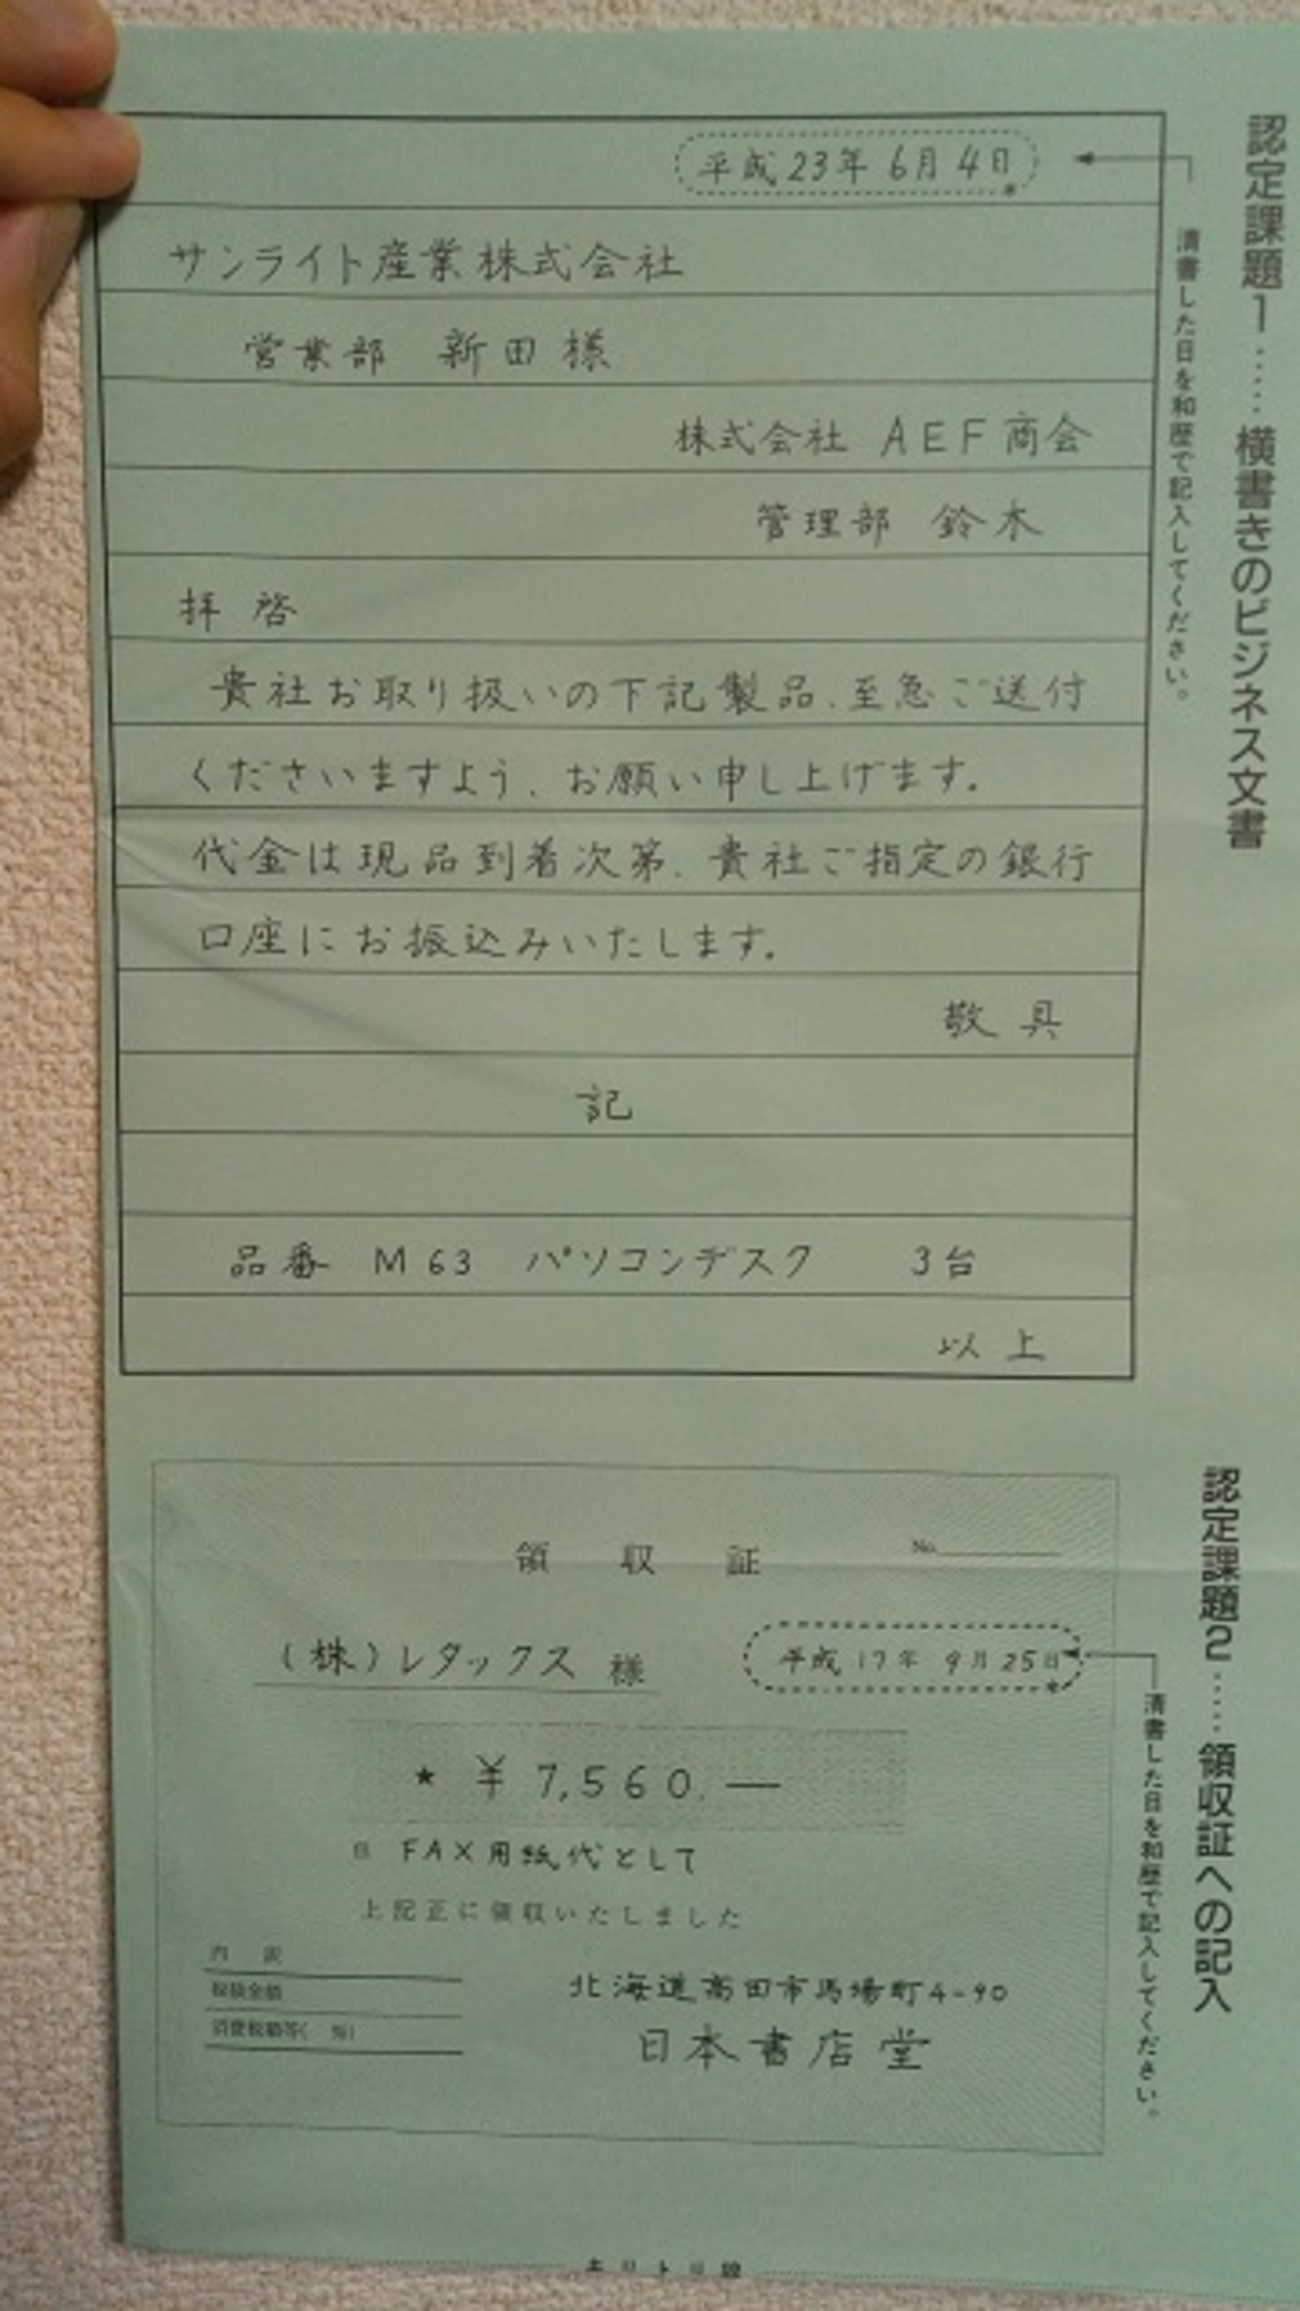 認定課題1……横書きのビジネス文書
清書した日を和暦で記入してください。
平成23年6月4日
サンライト産業株式会社
営業部 新田様
株式会社 AEF商会
管理部 鈴木
拝啓
貴社お取り扱いの下記製品、至急ご送付
くださいますよう、お願い申し上げます。
代金は現品到着次第、貴社ご指定の銀行
口座にお振込みいたします。
敬具
記
品番 M63 パソコンデスク 3台
以上
認定課題2……領収証への記入
清書した日を和暦で記入してください。
領収証
No.
(株)レタックス 様
平成17年9月25日
★ ¥7,560.―
但 FAX用紙代として
上記正に領収いたしました
内訳
税抜金額
消費税額等( %)
北海道高田市馬場町4-90
日本書店堂
キリトリ線